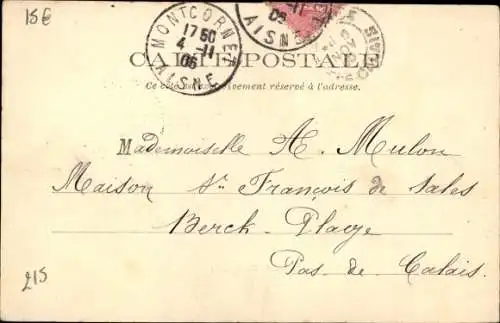 15€
MONTCORNET
17 50
4 - 11
06
AISNE
11
06
AISNE
CARTE POSTALE
Ce côté est exclusivement réservé à l'adresse.
Mademoiselle A. Mulon
Maison St. François de Sales
Berck-Plage
Pas-de-Calais.
215